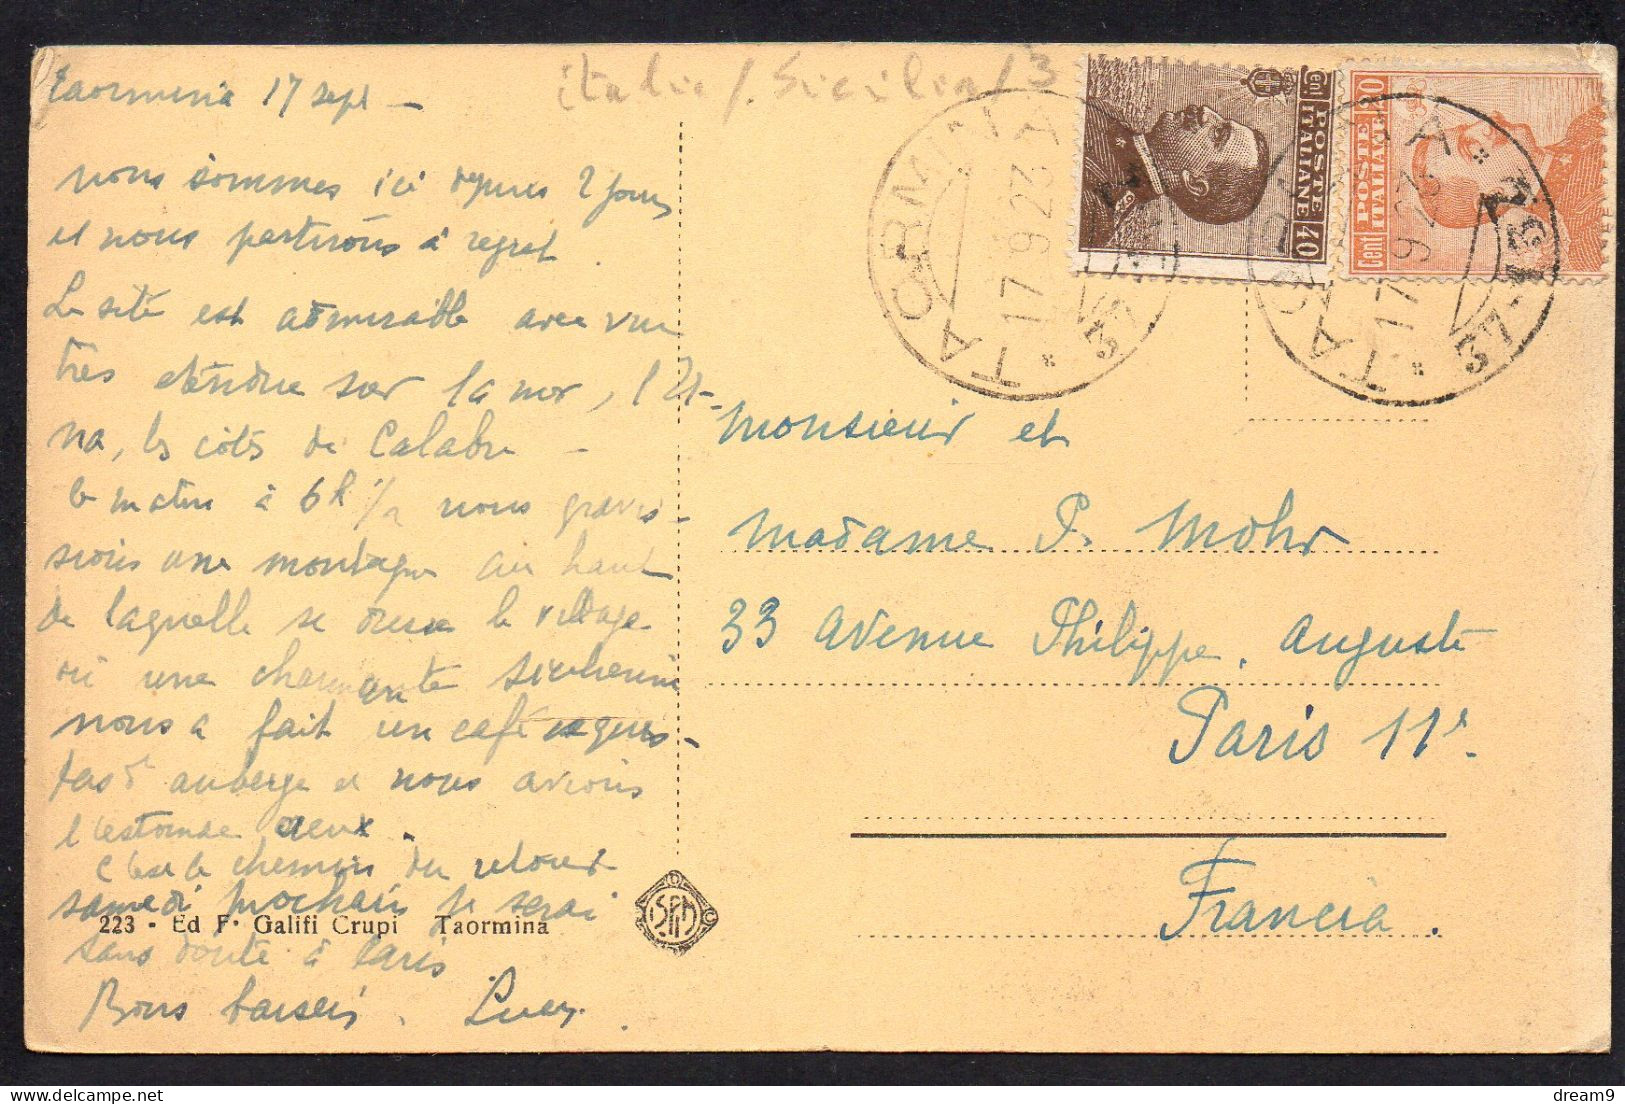 Taormina 17 sept –
nous sommes ici depuis 2 jours
et nous partirons à regret.
Le site est admirable avec vue
très étendue sur la mer, l'Et-
na, les côtes de Calabre –
le matin à 6h ½ nous gravis-
sions une montagne au haut
de laquelle se dresse le village
où une charmante sicilienne
nous a fait un café
auberge et nous avions
l'estomac creux.
C'est le chemin du retour
samedi prochain je serai
sans doute à Paris
Bons baisers. Lucy.
223 - Ed F. Galifi Crupi Taormina
italie / Sicilia / 3
POSTE ITALIANE
Cent 40
POSTE ITALIANE
Cent 20
TAORMINA
17 9 23
TAORMINA
17 9 23
37-137
Monsieur et
Madame P. Mohr
33 Avenue Philippe Auguste
Paris 11e
Francia.
© dream9